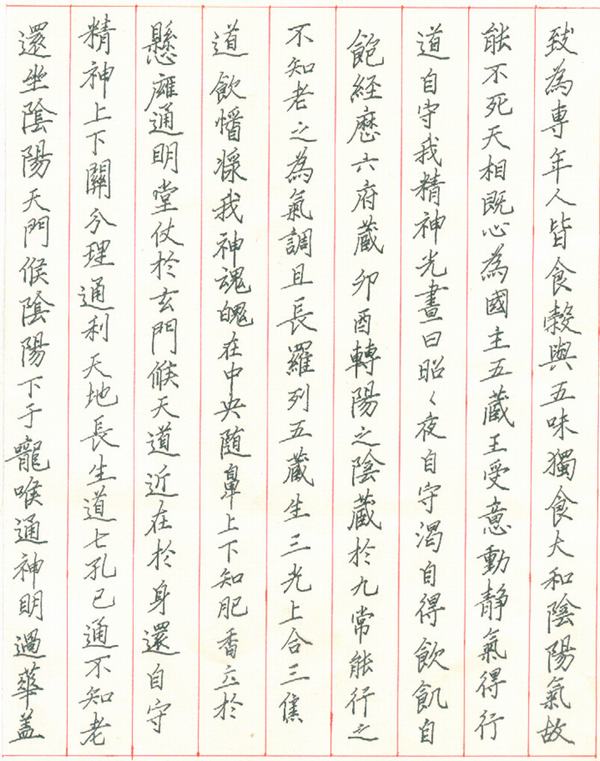 致為專年人皆食穀與五味獨食大和陰陽氣故
能不死天相既心為國主五藏王受意動静氣得行
道自守我精神光晝日昭〱夜自守渴自得飲飢自
飽經歷六府藏卯酉轉陽之陰藏於九常能行之
不知老之為氣調且長羅列五藏生三光上合三焦
道飲㬫漿我神魂魄在中央随鼻上下知肥香立於
懸廱通明堂仗於玄門候天道近在於身還自守
精神上下關分理通利天地長生道七孔已通不知老
還坐陰陽天門候陰陽下于嚨喉通神明過華盖